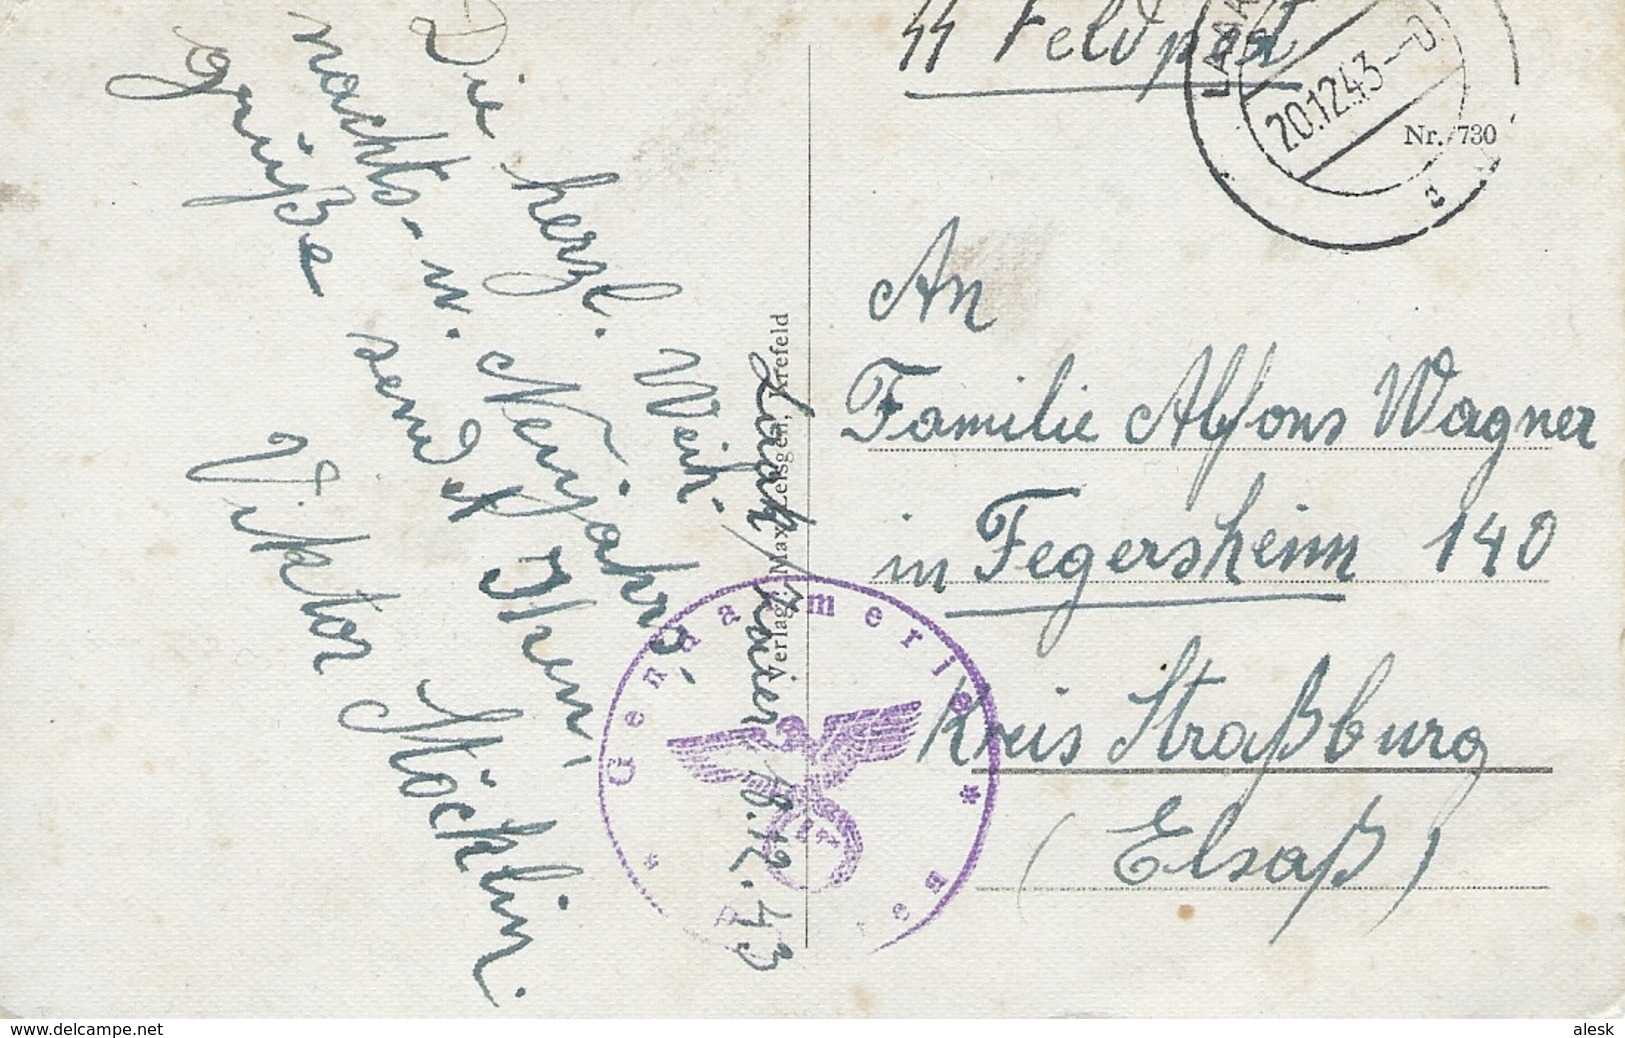 Die herzl. Weih-
nachts- u. Neujahrs-
grüße sendet Ihnen
Viktor Stöcklin.
18.12.43
Verlag: Max Krefeld
SS Feldpost
20.12.43
Nr. 730
An
Familie Alfons Wagner
in Fegersheim 140
Kreis Straßburg
(Elsaß)
Gendarmerie
www.delcampe.net
alesk